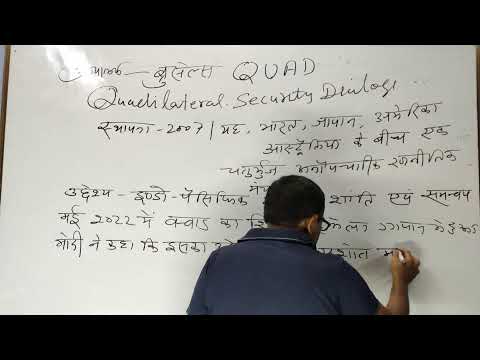 ब्रुसेल्स QUAD
Quadilateral Security Dialoge
स्थापना - 2007 | यह, भारत, जापान, अमेरिका
आस्ट्रेलिया के बीच एक
चतुर्भुज अनौपचारिक रणनीतिक
उद्देश्य - इण्डो-पैसिफिक शांति एवं समन्वय
मई 2022 में क्वाड का जापान में हुआ
मोदी ने कहा कि इसका